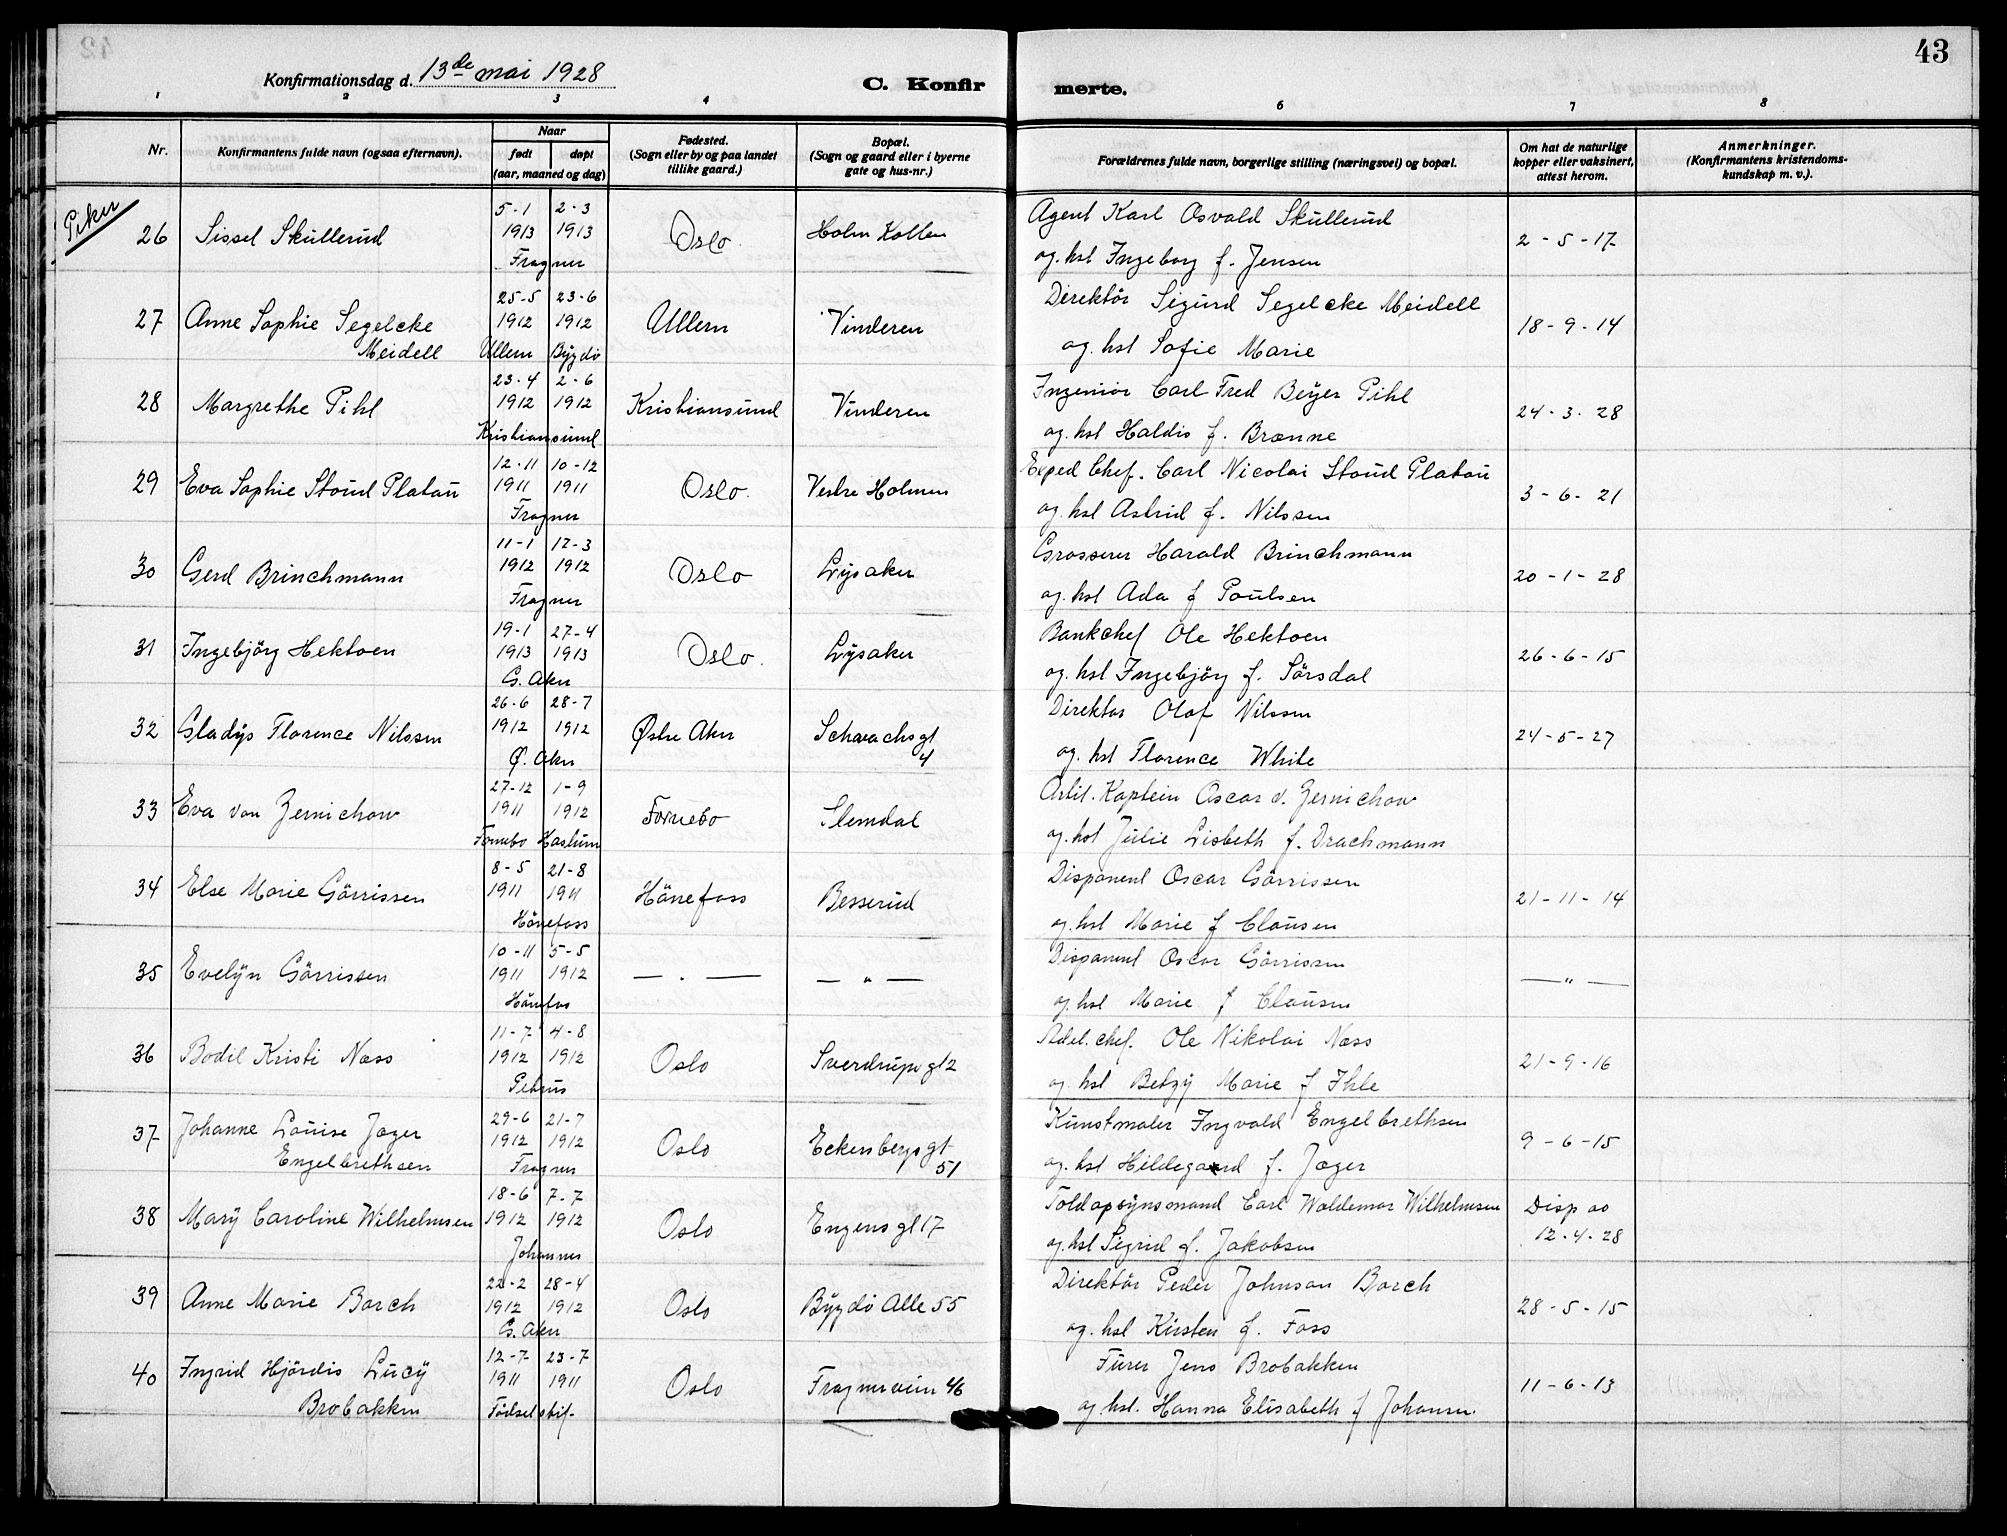 43
Konfirmationsdag d. 13de mai 1928
C. Konfir
merte.
1 2 3 4 6 7 8
Nr.
Konfirmantens fulde navn (ogsaa efternavn).
Naar
født døpt
(aar, maaned og dag)
Fødested.
(Sogn eller by og paa landet
tillike gaard.)
Bopæl.
(Sogn og gaard eller i byerne
gate og hus-nr.)
Forældrenes fulde navn, borgerlige stilling (næringsvei) og bopæl.
Om hat de naturlige
kopper eller vaksinert,
attest herom.
Anmerkninger.
(Konfirmantens kristendoms-
kundskap m. v.).
Piker
5-1 2-3 Agent Karl Osvald Skullerud
26 Sissel Skullerud 1913 1913 Oslo Holm Kollen 2-5-17
Frogner og hst Ingeborg f. Jensen
25-5 23-6 Direktör Sigurd Segelcke Meidell
27 Anne Sophie Segelcke 1912 1912 Ullern Vinderen 18-9-14
Meidell Ullern Bygdö og hst Sofie Marie
23-4 2-6 Ingeniör Carl Fred Beyer Pihl
28 Margrethe Pihl 1912 1912 Kristiansund Vinderen 24-3-28
Kristiansund og hst Haldis f. Brænne
12-11 10-12 Exped Chef. Carl Nicolai Stoud Platou
29 Eva Sophie Stoud Platou 1911 1911 Oslo Vestre Holmen 3-6-21
Frogner og hst Astrid f. Nilssen
11-1 17-3 Grosserer Harald Brinchmann
30 Gerd Brinchmann 1912 1912 Oslo Lysaker 20-1-28
Frogner og hst Ada f Poulsen
19-1 27-4 Bankchef Ole Hektoen
31 Ingebjörg Hektoen 1913 1913 Oslo Lysaker 26-6-15
G. Aker og hst Ingebjörg f. Sörsdal
26-6 28-7 Direktör Olaf Nilssen
32 Gladys Florence Nilssen 1912 1912 Østre Aker Schwachsgt 24-5-27
4
Ø. Aker og hst Florence White
27-12 1-9 Artil. Kaptein Oscar v. Zernichow
33 Eva von Zernichow 1911 1912 Fornebo Slemdal
Fornebo Haslum og hst Julie Lisbeth f. Drachmann
8-5 21-8 Disponent Oscar Görrissen
34 Else Marie Görrissen 1911 1911 Hönefoss Besserud 21-11-14
Hönefoss og hst Marie f Clausen
10-11 5-5 Disponent Oscar Görrissen
35 Evelyn Görrissen 1911 1912 — . — — " — — " —
Hönefos og hst Marie f Clausen
11-7 4-8 Adel. chef. Ole Nikolai Næss
36 Bodil Kristi Næss 1912 1912 Oslo Sverdrups gt 2 21-9-16
Petrus og hst Betzy Marie f Ihle
29-6 21-7 Kunstmaler Ingvald Engelbrethsen
37 Johanne Louise Jæger 1912 1912 Oslo Eckersbergs gt 9-6-15
Engelbrethsen 51
Frogner og hst Hildegard f. Jæger
18-6 7-7 Toldopsynsmand Carl Waldemar Wilhelmsen Disp as
38 Mary Caroline Wilhelmsen 1912 1912 Oslo Engens gt 17 12-4-28
Johannes og hst Sigrid f. Jakobsen
22-2 28-4 Direktör Peder Johnson Borch
39 Anne Marie Borch 1912 1912 Oslo Bygdö Alle 55 28-5-15
G. Aker og hst Kirsten f. Foss
12-7 23-7 Furer Jens Brobakken
40 Ingrid Hjördis Lucy 1911 1911 Oslo Frognerveien 46 11-6-13
Brobakken Födselstif. og hst. Hanna Elisabeth f Johansen